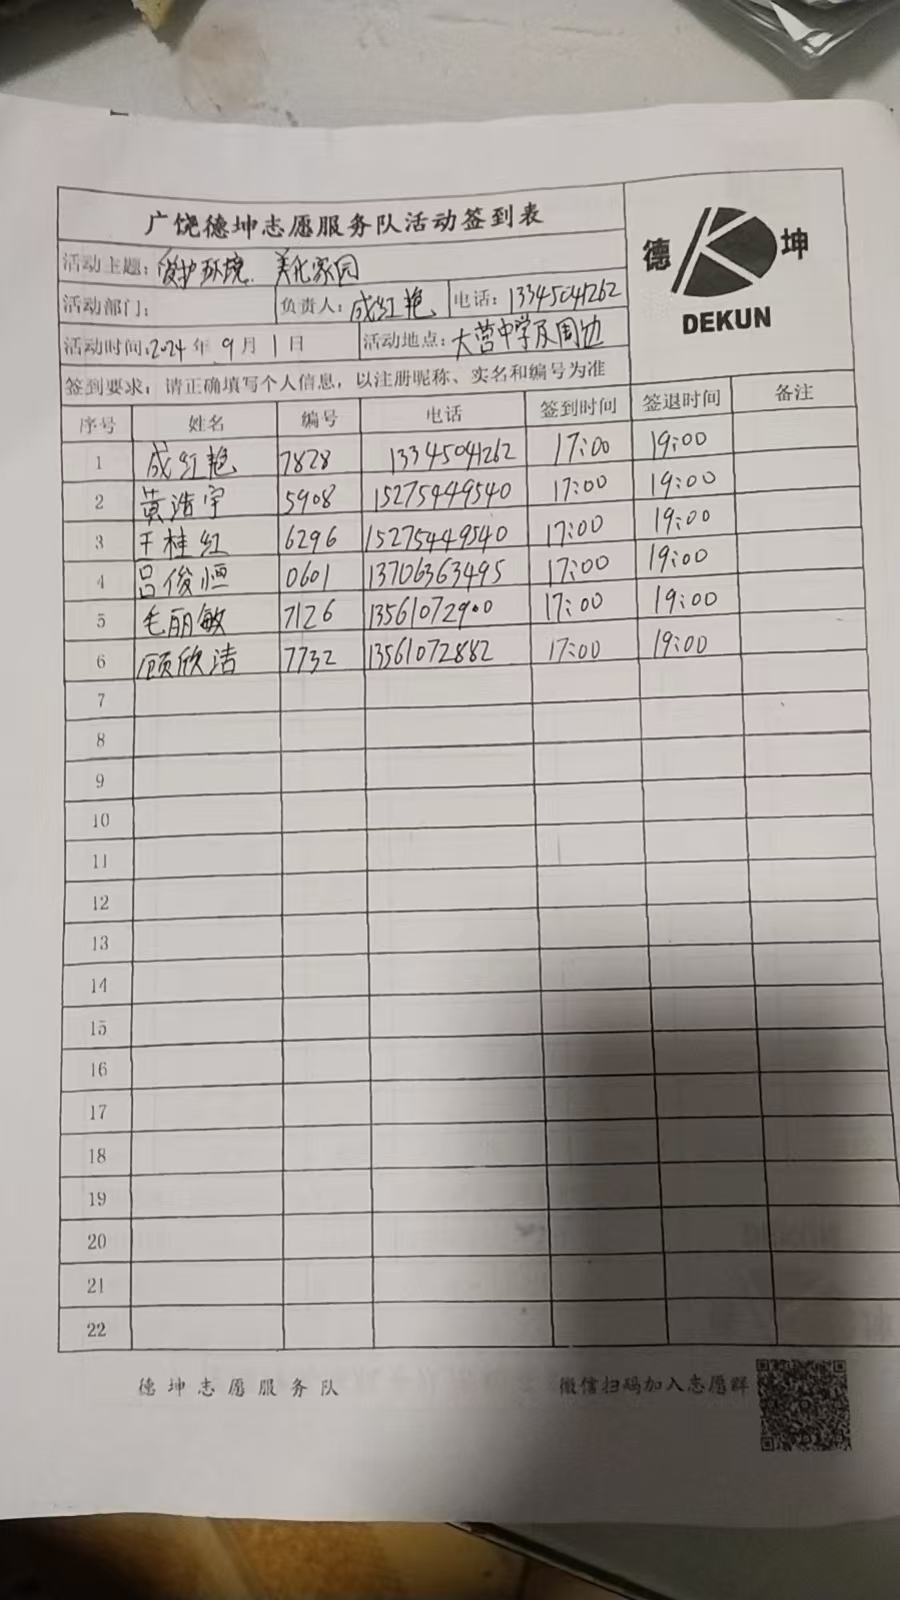 广饶德坤志愿服务队活动签到表
德 坤
DEKUN
活动主题：爱护环境 美化家园
活动部门： 负责人：成红艳 电话：13345041262
活动时间：2024年9月1日 活动地点：大营中学及周边
签到要求：请正确填写个人信息，以注册昵称、实名和编号为准
序号 姓名 编号 电话 签到时间 签退时间 备注
1 成红艳 7828 13345041262 17:00 19:00
2 黄浩宇 5908 15275449540 17:00 19:00
3 王桂红 6296 15275449540 17:00 19:00
4 吕俊恒 0601 13706363495 17:00 19:00
5 毛丽敏 7126 13561072900 17:00 19:00
6 顾欣洁 7732 13561072882 17:00 19:00
7
8
9
10
11
12
13
14
15
16
17
18
19
20
21
22
德坤志愿服务队 微信扫码加入志愿群